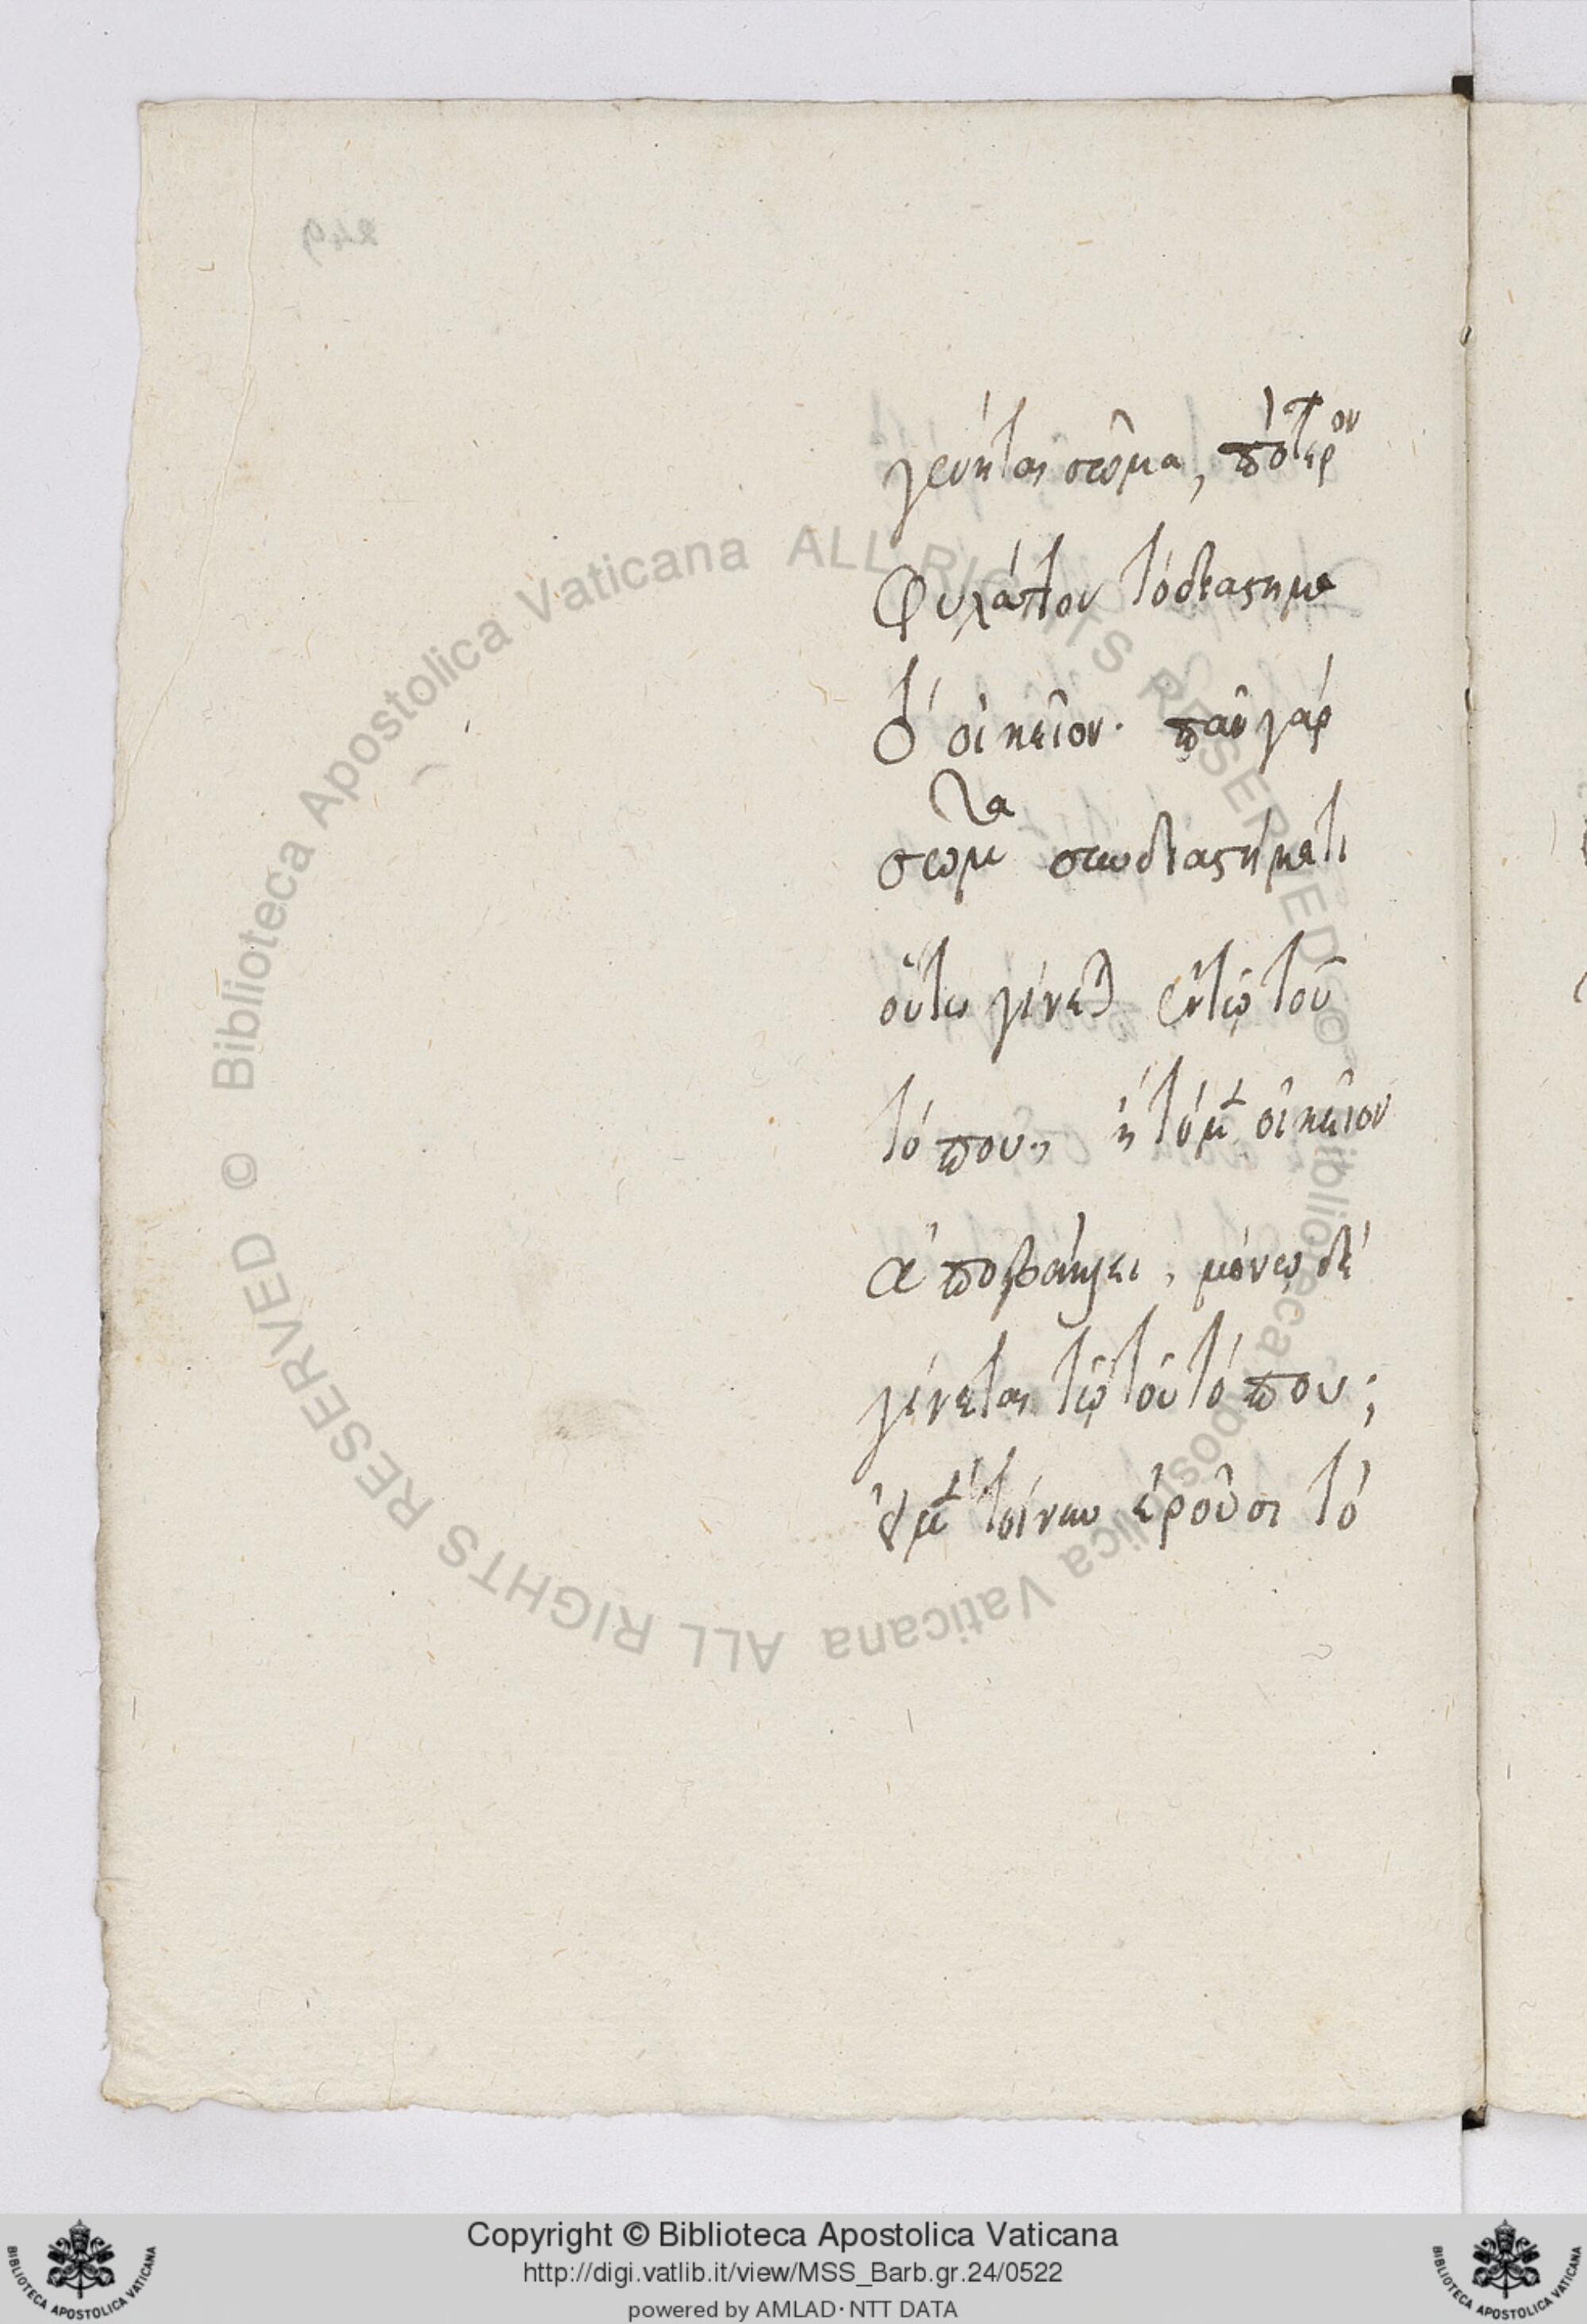 γένηται σῶμα, πότερον
φυλάττον τὸ διάστημα
τὸ οἰκεῖον· πᾶν γὰρ
σῶμα σὺν διαστήματι
οὕτω γίνεται ἐν τῷ τοῦ
τόπου, ἢ τὸ μὲν οἰκεῖον
ἀποβάλλει, μόνῳ δὲ
γίνεται τῷ τοῦ τόπου;
εἰ μὲν τοίνυν ἐροῦσι τὸ
249
© Biblioteca Apostolica Vaticana ALL RIGHTS RESERVED
© Biblioteca Apostolica Vaticana ALL RIGHTS RESERVED
Copyright © Biblioteca Apostolica Vaticana
http://digi.vatlib.it/view/MSS_Barb.gr.24/0522
powered by AMLAD·NTT DATA
BIBLIOTECA APOSTOLICA VATICANA
BIBLIOTECA APOSTOLICA VATICANA